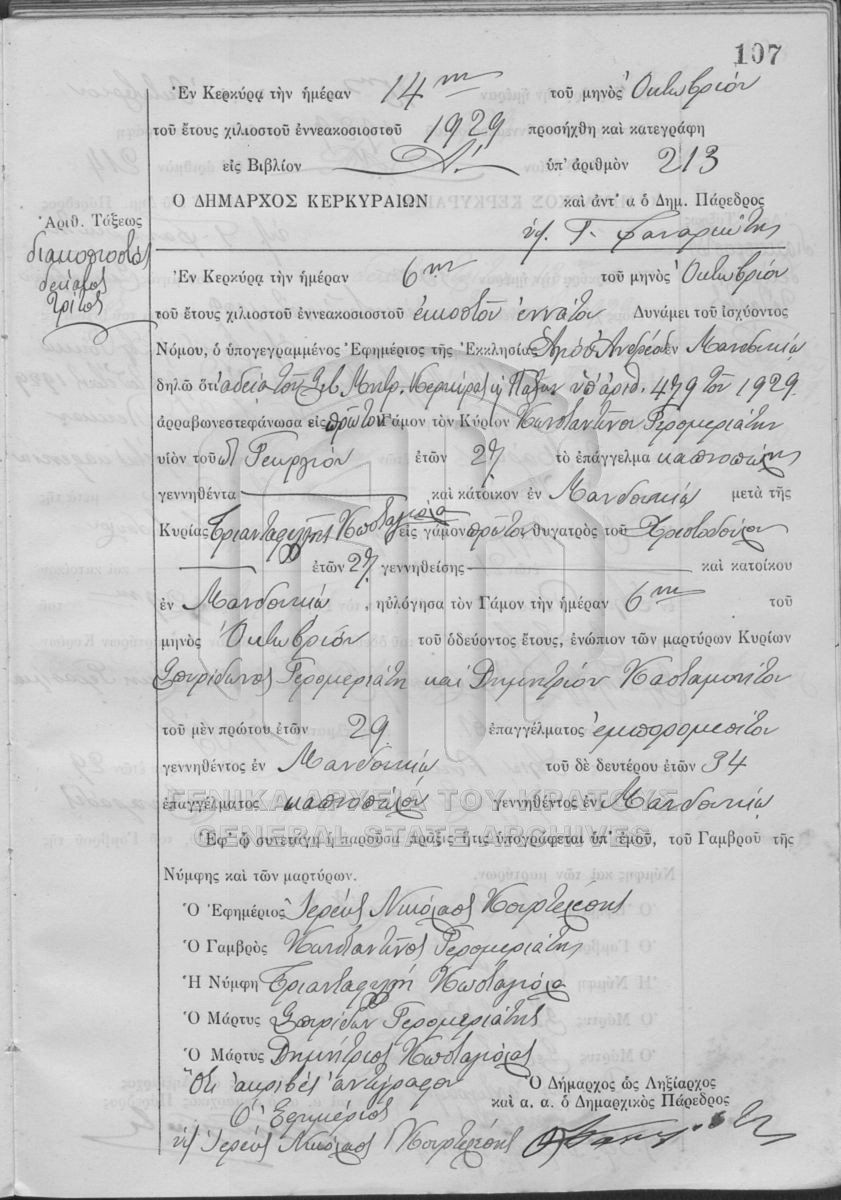 107
Ἐν Κερκύρᾳ τὴν ἡμέραν 14ην τοῦ μηνὸς Ὀκτωβρίου
τοῦ ἔτους χιλιοστοῦ ἐννεακοσιοστοῦ 1929 προσήχθη καὶ κατεγράφη
εἰς Βιβλίον Α΄. ὑπ' ἀριθμὸν 213
Ο ΔΗΜΑΡΧΟΣ ΚΕΡΚΥΡΑΙΩΝ καὶ ἀντ' α ὁ Δημ. Πάρεδρος
Ἀριθ. Τάξεως
διακοσιοστός
δέκατος
τρίτος
ὑπ. Γ. Φαναριώτης
Ἐν Κερκύρᾳ τὴν ἡμέραν 6ην τοῦ μηνὸς Ὀκτωβρίου
τοῦ ἔτους χιλιοστοῦ ἐννεακοσιοστοῦ εἰκοστοῦ ἐννάτου Δυνάμει τοῦ ἰσχύοντος
Νόμου, ὁ ὑπογεγραμμένος Ἐφημέριος τῆς Ἐκκλησίας Ἀνδρέου ἐν Μανδουκίῳ
δηλῶ ὅτι ἀδείᾳ τοῦ Σεβ. Μητρ. Κερκύρας ἢ Παξῶν ὑπ' ἀριθ. 479 τοῦ 1929.
ἀρραβωνεστεφάνωσα εἰς πρῶτον Γάμον τὸν Κύριον Κωνσταντῖνον Γερομεριάτην
υἱὸν τοῦ Γεωργίου ἐτῶν 27 τὸ ἐπάγγελμα καπνοπώλης
γεννηθέντα καὶ κάτοικον ἐν Μανδουκίῳ μετὰ τῆς
Κυρίας Τριανταφυλλῆς Κωσταγιόλα εἰς γάμον πρῶτον θυγατρὸς τοῦ Χριστοδούλου
ἐτῶν 27 γεννηθείσης καὶ κατοίκου
ἐν Μανδουκίῳ, ηὐλόγησα τὸν Γάμον τὴν ἡμέραν 6ην τοῦ
μηνὸς Ὀκτωβρίου τοῦ ὁδεύοντος ἔτους, ἐνώπιον τῶν μαρτύρων Κυρίων
Σπυρίδωνος Γερομεριάτη καὶ Δημητρίου
τοῦ μὲν πρώτου ἐτῶν 29 ἐπαγγέλματος ἐμπορομεσίτου
γεννηθέντος ἐν Μανδουκίῳ τοῦ δὲ δευτέρου ἐτῶν 34
ἐπαγγέλματος καπνοπώλου γεννηθέντος ἐν Μανδουκίῳ
ΓΕΝΙΚΑ ΑΡΧΕΙΑ ΤΟΥ ΚΡΑΤΟΥΣ
GENERAL STATE ARCHIVES
Ἐφ' ᾧ συνετάγη ἡ παροῦσα πρᾶξις ἥτις ὑπογράφεται ὑπ' ἐμοῦ, τοῦ Γαμβροῦ τῆς
Νύμφης καὶ τῶν μαρτύρων.
Ὁ Ἐφημέριος Ἱερεὺς Νικόλαος Κουρτελέσης
Ὁ Γαμβρὸς Κωνσταντῖνος Γερομεριάτης
Ἡ Νύμφη Τριανταφυλλῆ Κωσταγιόλα
Ὁ Μάρτυς Σπυρίδων Γερομεριάτης
Ὁ Μάρτυς Δημήτριος Κωσταγιόλας
Ὅτι ἀκριβὲς ἀντίγραφον
Ὁ Ἐφημέριος
ὑπ. Ἱερεὺς Νικόλαος Κουρτελέσης
Ὁ Δήμαρχος ὡς Ληξίαρχος
καὶ α. α. ὁ Δημαρχικὸς Πάρεδρος